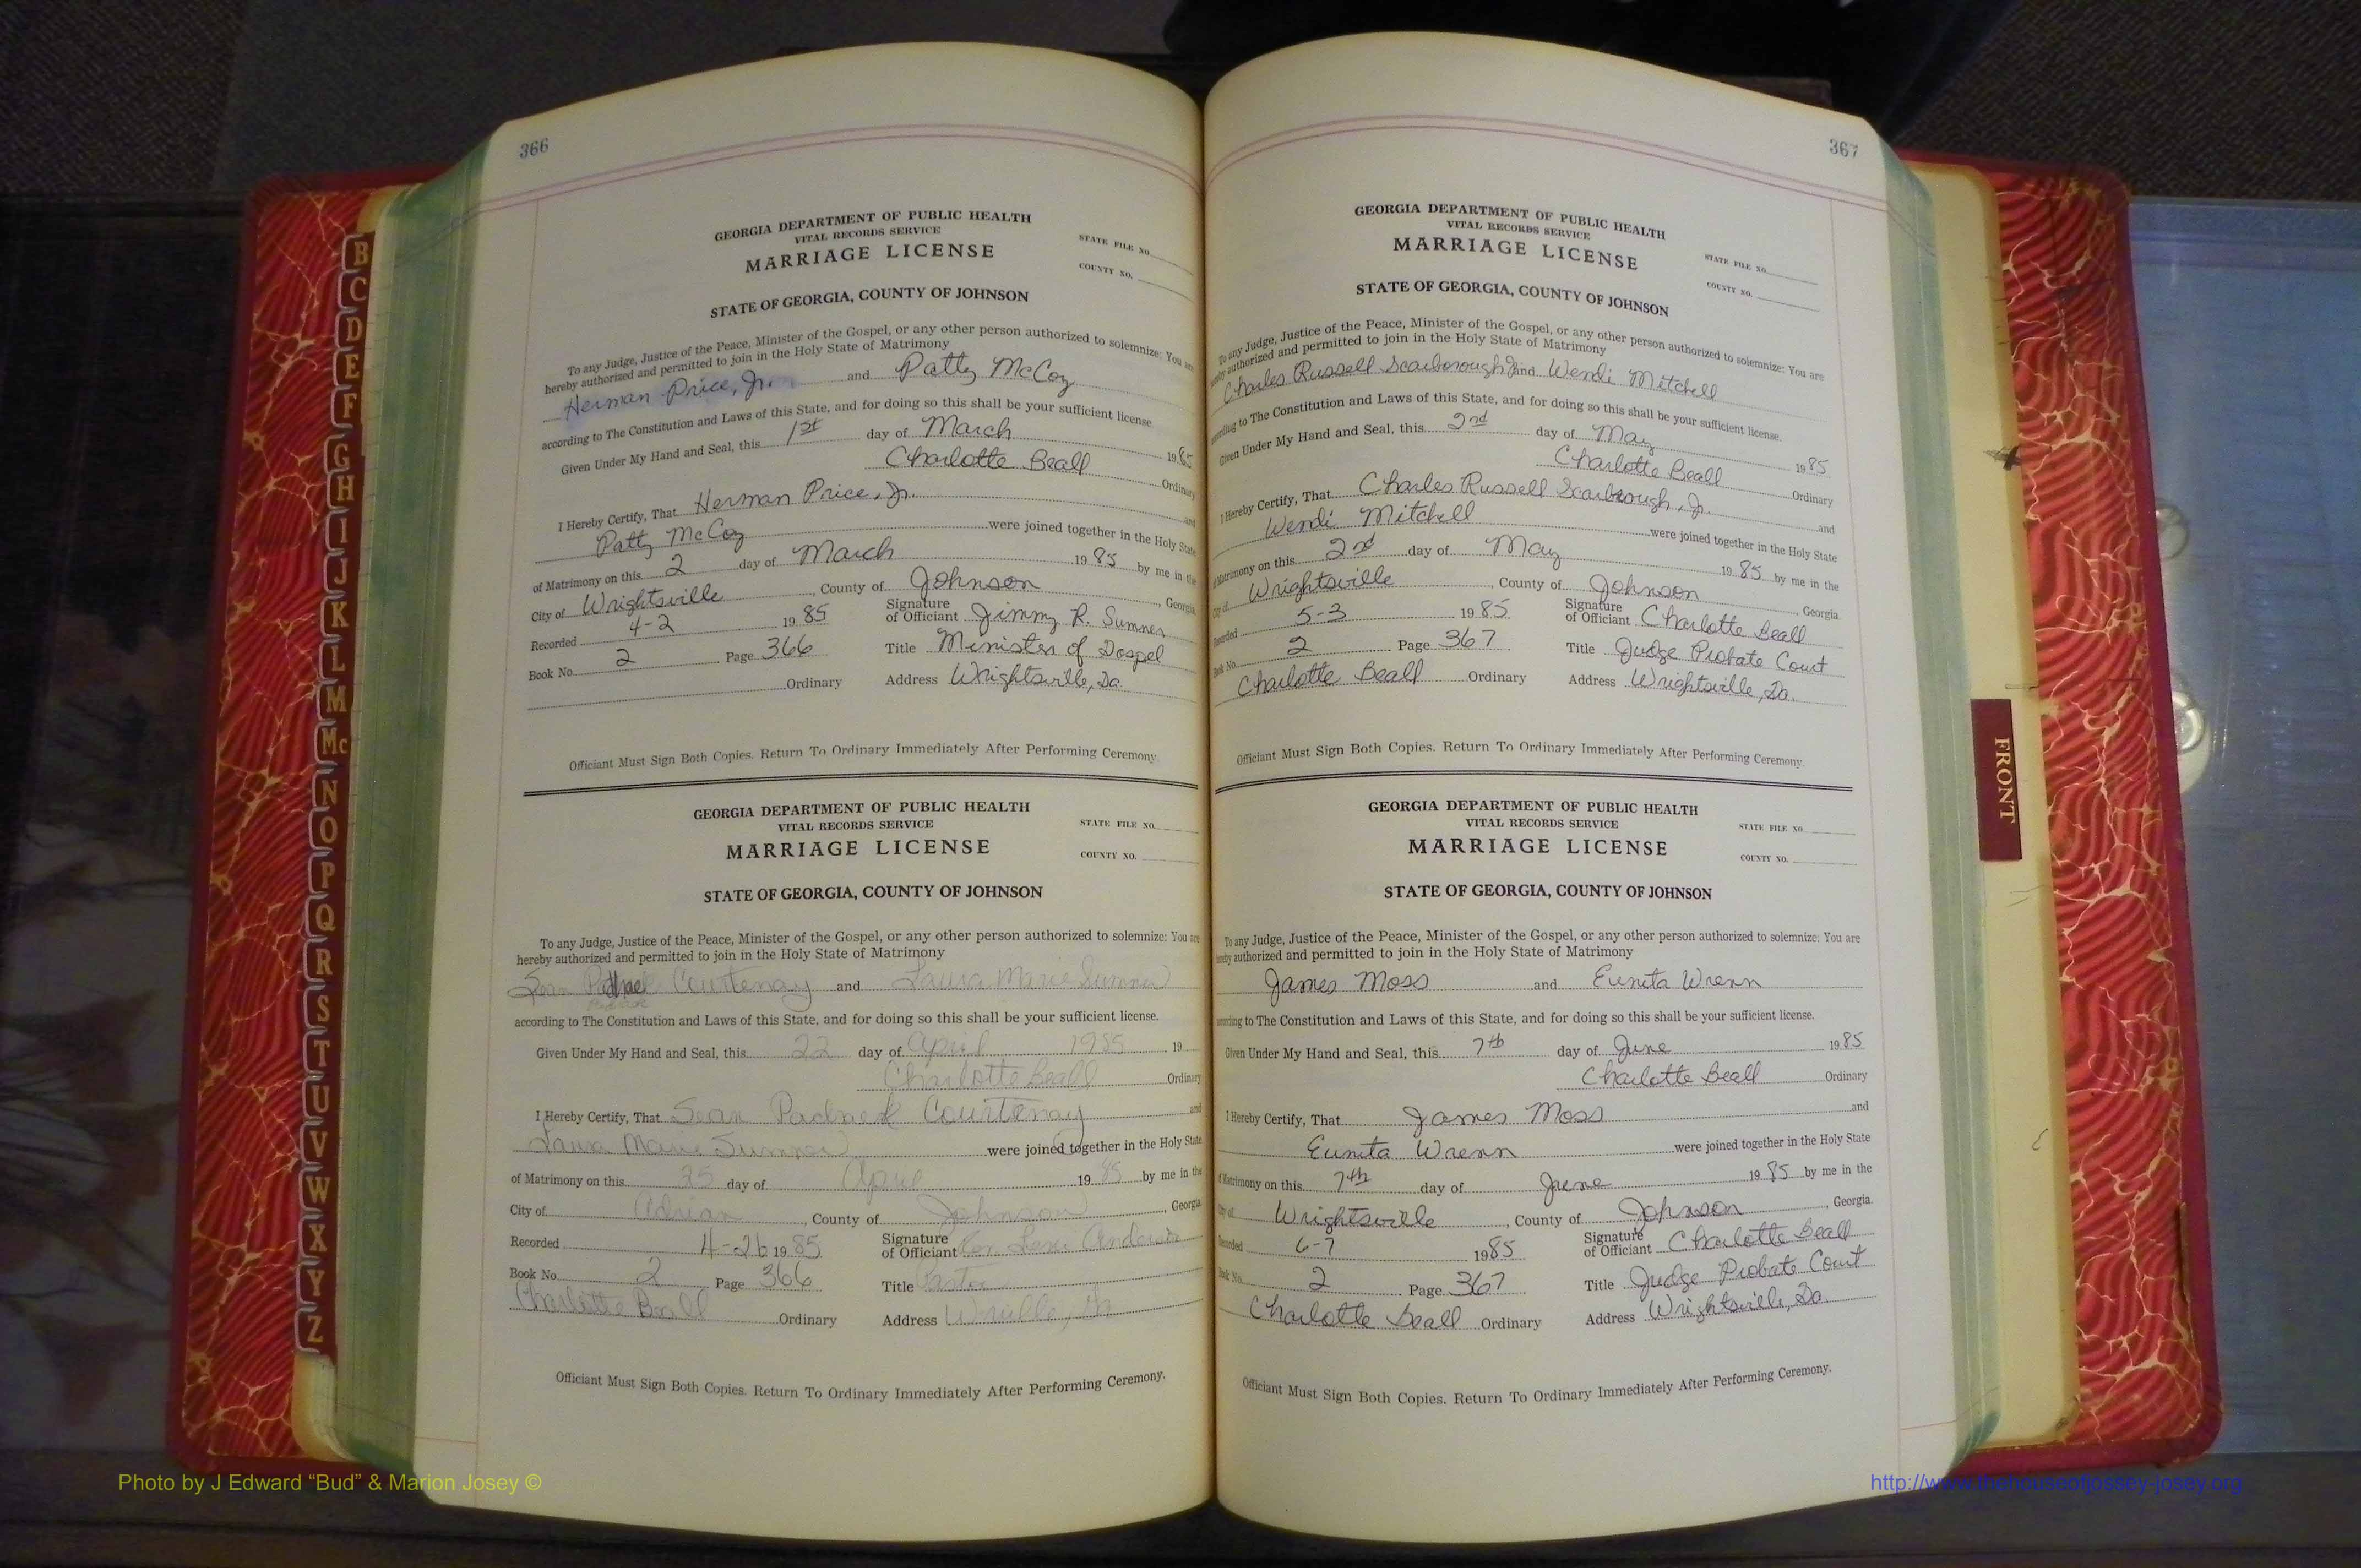 366
GEORGIA DEPARTMENT OF PUBLIC HEALTH
VITAL RECORDS SERVICE
MARRIAGE LICENSE
STATE FILE NO.
COUNTY NO.
STATE OF GEORGIA, COUNTY OF JOHNSON
To any Judge, Justice of the Peace, Minister of the Gospel, or any other person authorized to solemnize: You are
hereby authorized and permitted to join in the Holy State of Matrimony
Herman Price, Jr. and Patty McCoy
according to The Constitution and Laws of this State, and for doing so this shall be your sufficient license
Given Under My Hand and Seal, this 1st day of March 1985
Charlotte Beall Ordinary
I Hereby Certify, That Herman Price, Jr. and
Patty McCoy were joined together in the Holy State
of Matrimony on this 2 day of March 1985 by me in the
City of Wrightsville, County of Johnson, Georgia
Recorded 4-2 1985 Signature of Officiant Jimmy R. Sumner
Book No. 2 Page 366 Title Minister of Gospel
Ordinary Address Wrightsville, Ga.
Officiant Must Sign Both Copies. Return To Ordinary Immediately After Performing Ceremony.
GEORGIA DEPARTMENT OF PUBLIC HEALTH
VITAL RECORDS SERVICE
MARRIAGE LICENSE
STATE FILE NO.
COUNTY NO.
STATE OF GEORGIA, COUNTY OF JOHNSON
To any Judge, Justice of the Peace, Minister of the Gospel, or any other person authorized to solemnize: You are
hereby authorized and permitted to join in the Holy State of Matrimony
Sean Courtenay and Laura Marie Sumner
according to The Constitution and Laws of this State, and for doing so this shall be your sufficient license.
Given Under My Hand and Seal, this 22 day of April 1985 19
Charlotte Beall Ordinary
I Hereby Certify, That Sean Courtenay and
Laura Marie Sumner were joined together in the Holy State
of Matrimony on this 25 day of April 1985 by me in the
City of Adrian, County of Johnson, Georgia
Recorded 4-26 1985 Signature of Officiant
Book No. 2 Page 366 Title Pastor
Charlotte Beall Ordinary Address
Officiant Must Sign Both Copies. Return To Ordinary Immediately After Performing Ceremony.
367
GEORGIA DEPARTMENT OF PUBLIC HEALTH
VITAL RECORDS SERVICE
MARRIAGE LICENSE
STATE FILE NO.
COUNTY NO.
STATE OF GEORGIA, COUNTY OF JOHNSON
To any Judge, Justice of the Peace, Minister of the Gospel, or any other person authorized to solemnize: You are
hereby authorized and permitted to join in the Holy State of Matrimony
Charles Russell Scarborough Jr and Wendi Mitchell
according to The Constitution and Laws of this State, and for doing so this shall be your sufficient license.
Given Under My Hand and Seal, this 2nd day of May 1985
Charlotte Beall Ordinary
I Hereby Certify, That Charles Russell Scarborough, Jr. and
Wendi Mitchell were joined together in the Holy State
of Matrimony on this 2nd day of May 1985 by me in the
City of Wrightsville, County of Johnson, Georgia
Recorded 5-3 1985 Signature of Officiant Charlotte Beall
Book No. 2 Page 367 Title Judge Probate Court
Charlotte Beall Ordinary Address Wrightsville, Ga.
Officiant Must Sign Both Copies. Return To Ordinary Immediately After Performing Ceremony.
GEORGIA DEPARTMENT OF PUBLIC HEALTH
VITAL RECORDS SERVICE
MARRIAGE LICENSE
STATE FILE NO.
COUNTY NO.
STATE OF GEORGIA, COUNTY OF JOHNSON
To any Judge, Justice of the Peace, Minister of the Gospel, or any other person authorized to solemnize: You are
hereby authorized and permitted to join in the Holy State of Matrimony
James Moss and Eunita Wrenn
according to The Constitution and Laws of this State, and for doing so this shall be your sufficient license.
Given Under My Hand and Seal, this 7th day of June 1985
Charlotte Beall Ordinary
I Hereby Certify, That James Moss and
Eunita Wrenn were joined together in the Holy State
of Matrimony on this 7th day of June 1985 by me in the
City of Wrightsville, County of Johnson, Georgia.
Recorded 6-7 1985 Signature of Officiant Charlotte Beall
Book No. 2 Page 367 Title Judge Probate Court
Charlotte Beall Ordinary Address Wrightsville, Ga.
Officiant Must Sign Both Copies. Return To Ordinary Immediately After Performing Ceremony.
B
C
D
E
F
G
H
I
J
K
L
M
Mc
N
O
P
Q
R
S
T
U
V
W
X
Y
Z
FRONT
Photo by J Edward “Bud” & Marion Josey ©
http://www.thehouseofjossey-josey.org